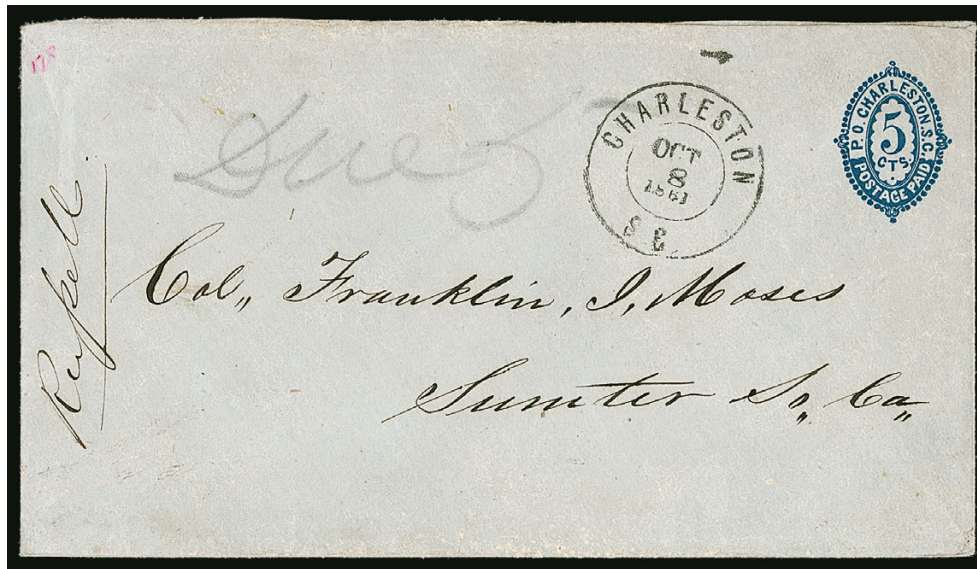 178
Due 5
CHARLESTON
OCT
8
1861
S C
P. O. CHARLESTON. S. C.
5
CTS.
POSTAGE PAID
Col,, Franklin, J, Moses
Sumter So,, Ca,,